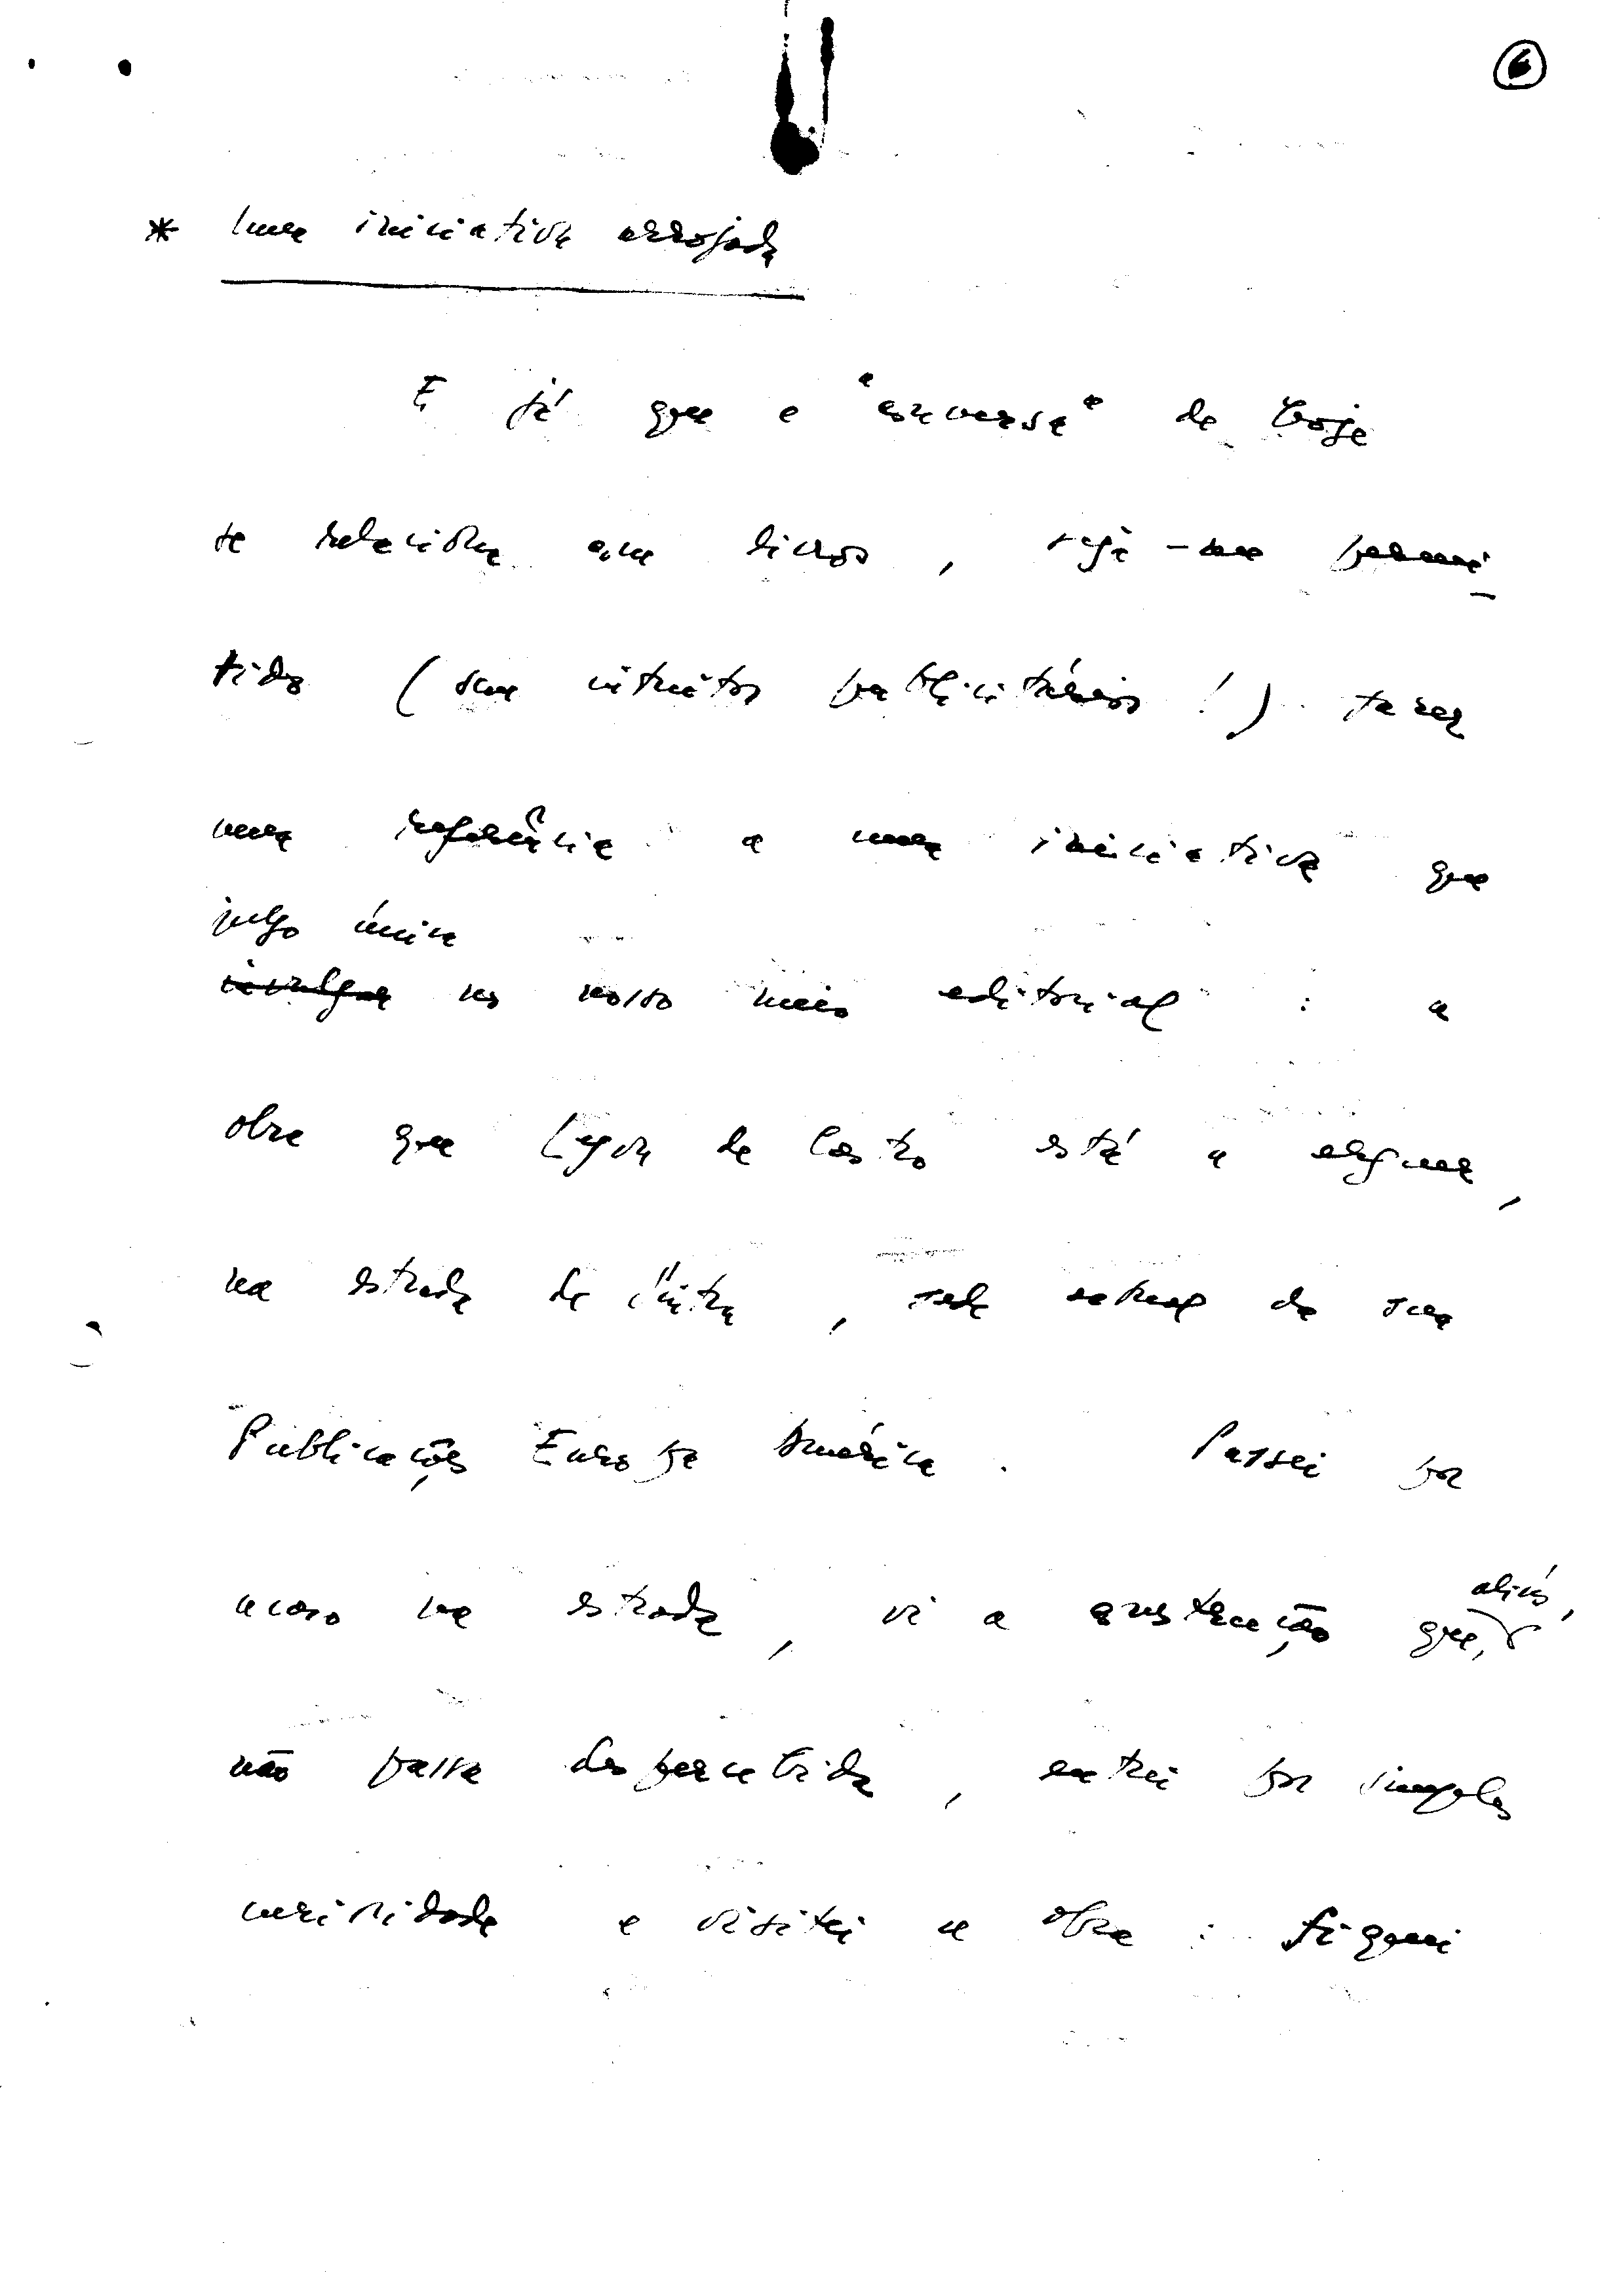 6
* Uma iniciativa arrojada
E já que a "conversa" de hoje
se relaciona com livros, seja-me permi-
tido (sem intuitos publicitários!) fazer
uma referência a uma iniciativa que
julgo única
invulgar no nosso meio editorial: a
obra que Lyon de Castro está a erguer,
na estrada de Sintra, sede actual da sua
Publicações Europa América. Passei por
acaso na estrada, vi a construção que, aliás,
não passa despercebida, entrei por simples
curiosidade e visitei a obra: fiquei